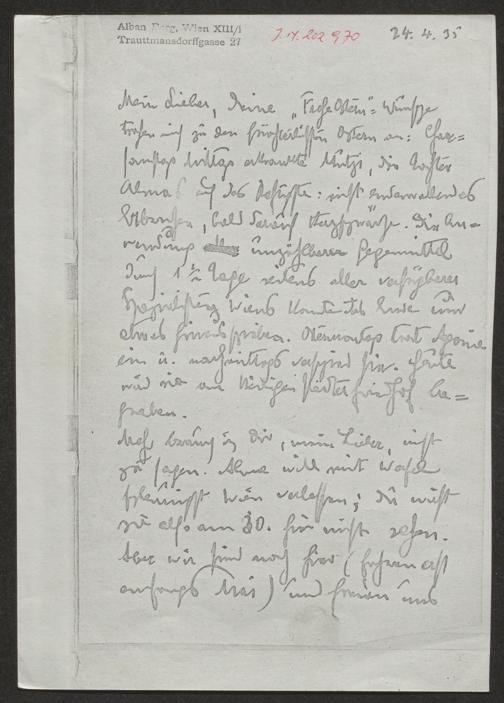 Alban Berg, Wien XIII/1
Trauttmansdorffgasse 27
I.N. 202 970
24. 4. 35
Mein Lieber, Deine „Frohe Ostern"= Wünsche
trafen mich zu den fürchterlichsten Ostern an: Char=
samstag Mittags erkrankte Mutzi, die Tochter
Almas auf das Heftigste: nicht endenwollendes
Erbrechen, bald darauf Herzschwäche. Die An=
wendung unzähliger Gegenmittel
durch 1 ½ Tage seitens aller verfügbaren
Spezialisten Wiens konnte das Ende nur
etwas hinausschieben. Ostermontag trat Agonie
ein u. nachmittags verschied sie. Heute
wird sie am Hietzinger Friedhof be=
graben.
Mehr brauch ich Dir, mein Lieber, nicht
zu sagen. Alma will mit Werfel
schleunigst Wien verlassen; Du wirst
sie also am 30. hier nicht sehen.
Aber wir sind noch hier (fahren erst
anfangs Mai) und freuen uns